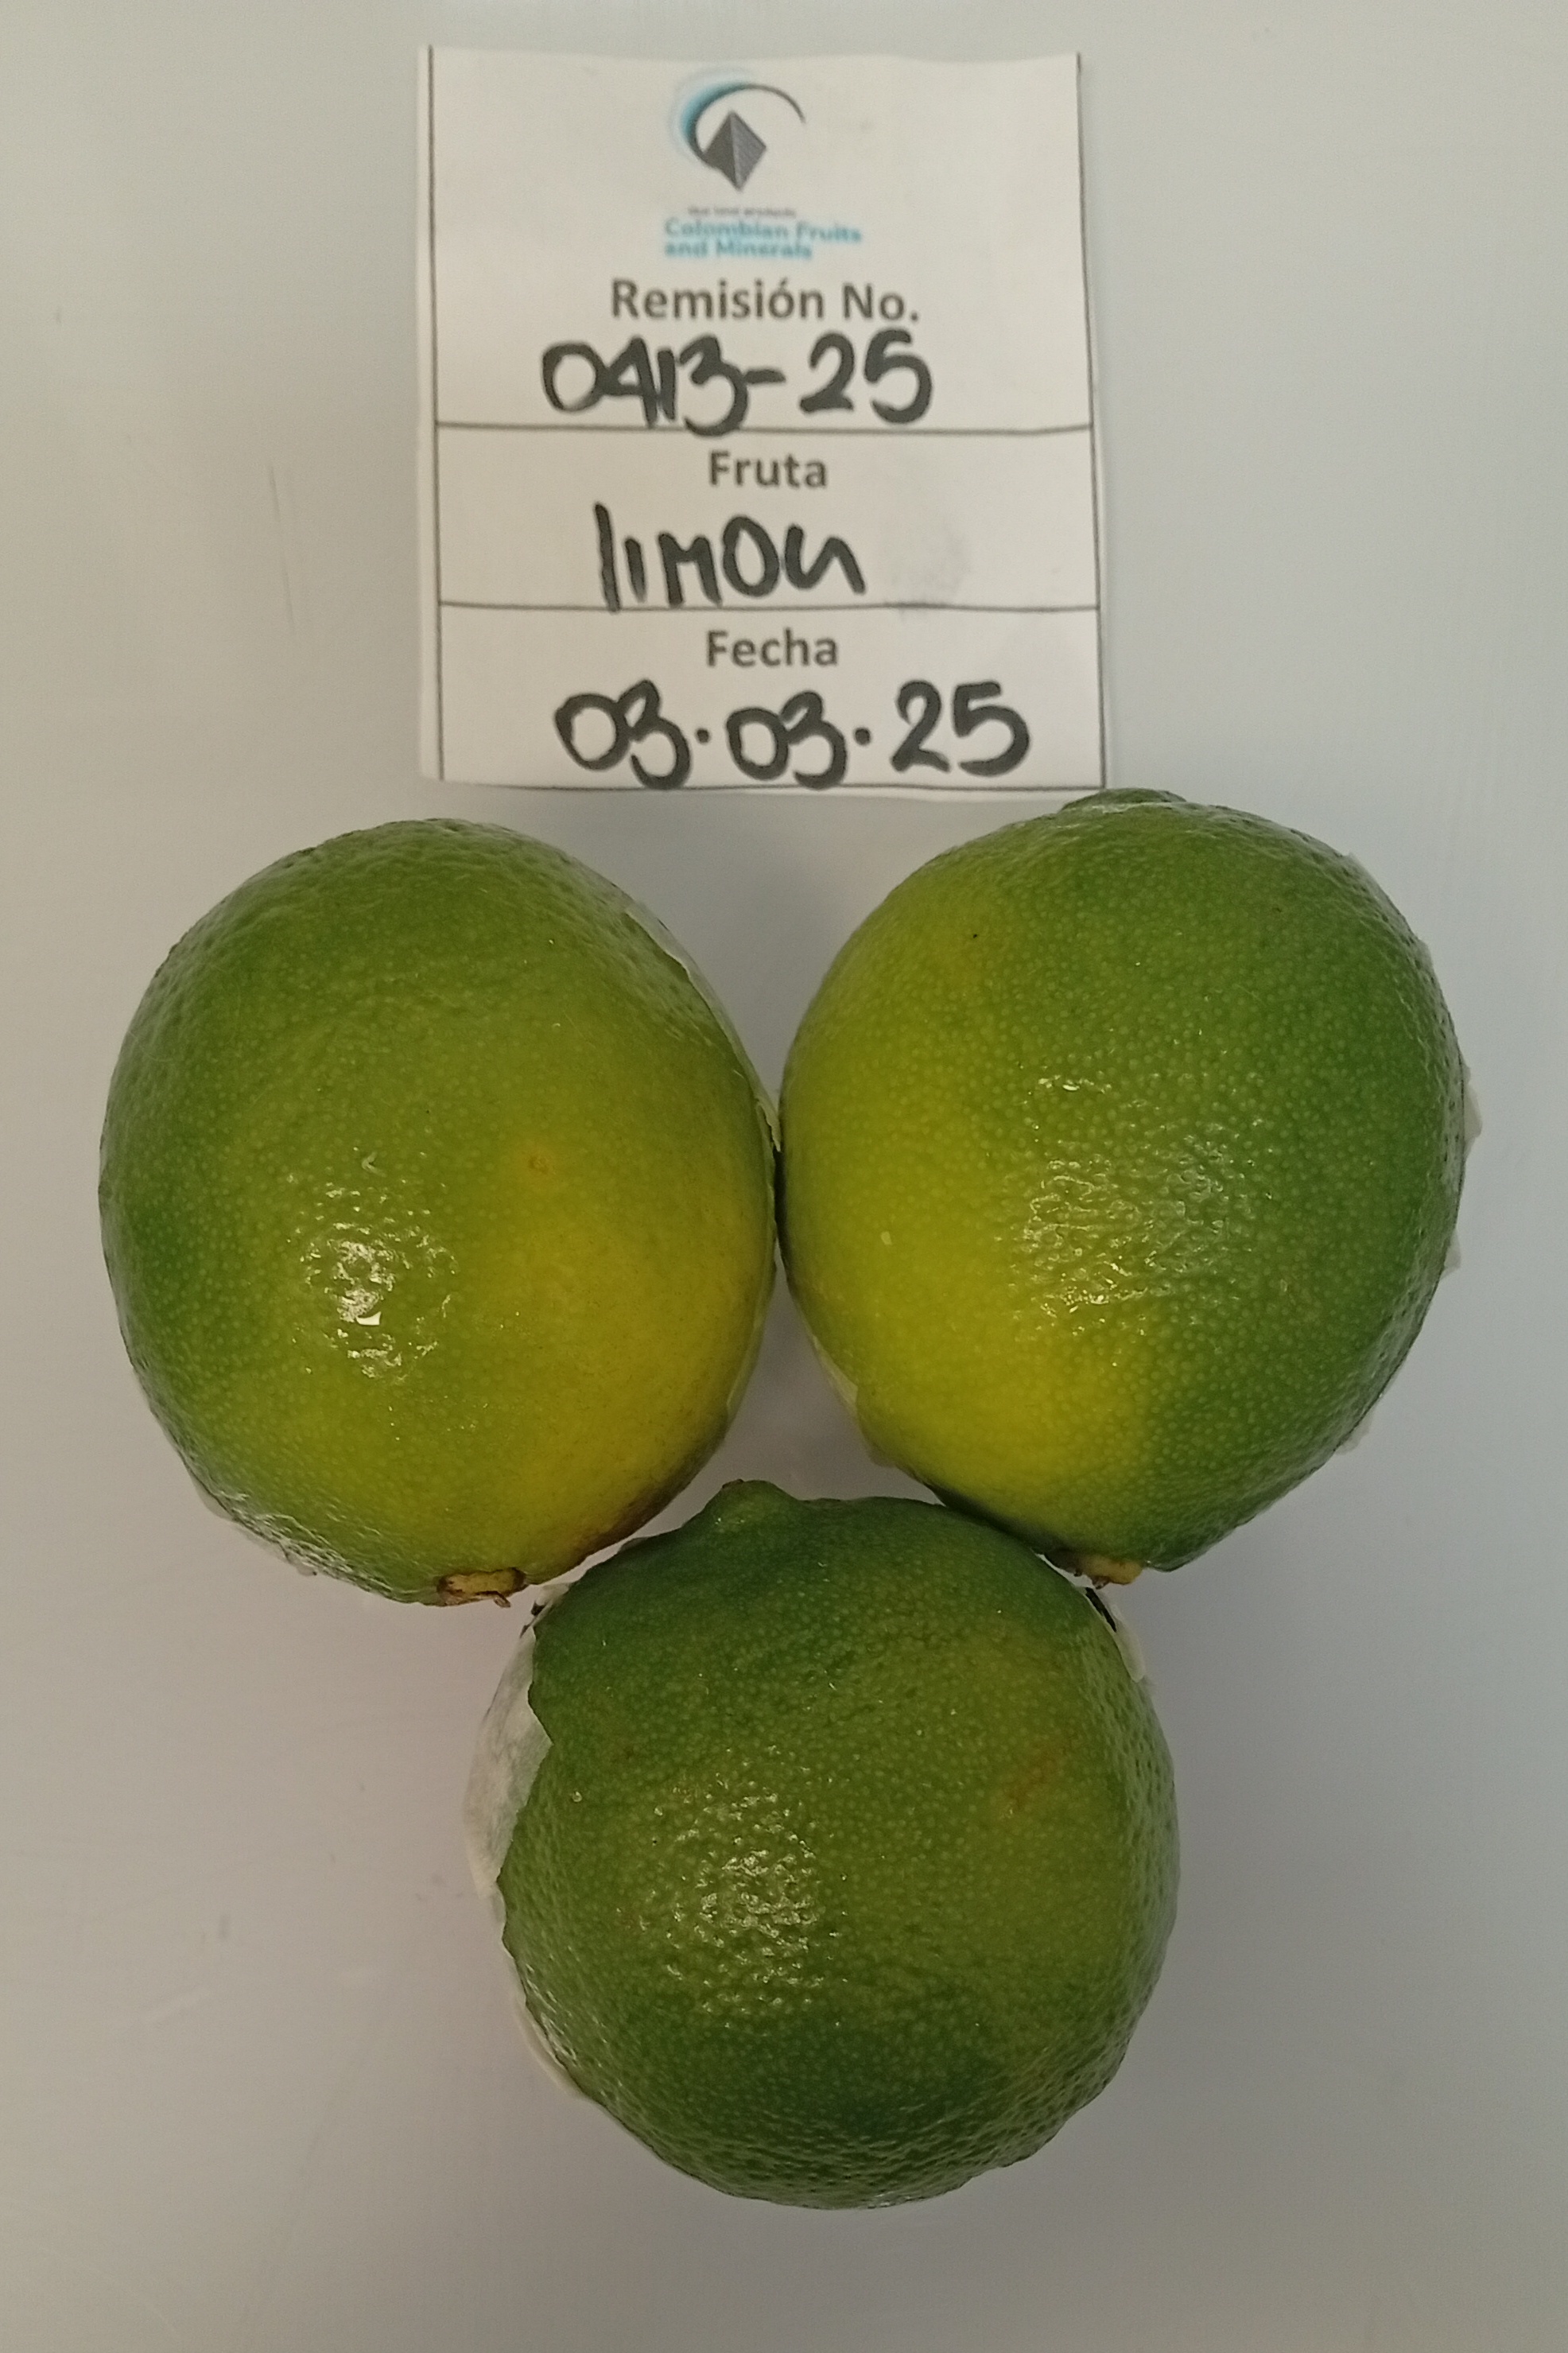 Colombian Fruits
and Minerals
Remisión No.
0413-25
Fruta
limon
Fecha
03.03.25